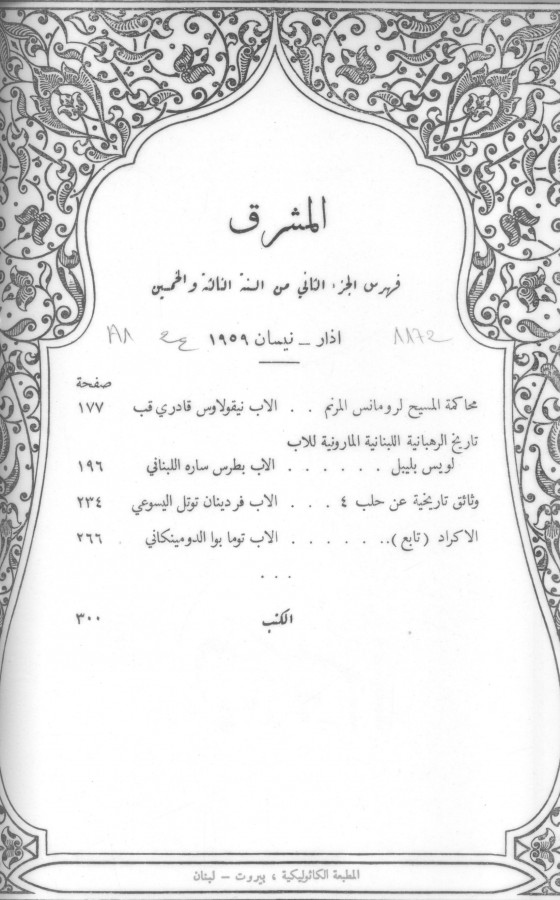 المشرق
فهرس الجزء الثاني من السنة الثالثة والخمسين
اذار – نيسان ١٩٥٩
صفحة
محاكمة المسيح لرومانس المرنم . . الاب نيقولاوس قادري قب ١٧٧
تاريخ الرهبانية اللبنانية المارونية للاب
لويس بليبل . . . . . . الاب بطرس ساره اللبناني ١٩٦
وثائق تاريخية عن حلب ٤ . . . الاب فردينان توتل اليسوعي ٢٣٤
الاكراد (تابع) . . . . . . . الاب توما بوا الدومينكاني ٢٦٦
. . .
الكتب ٣٠٠
المطبعة الكاثوليكية ، بيروت – لبنان